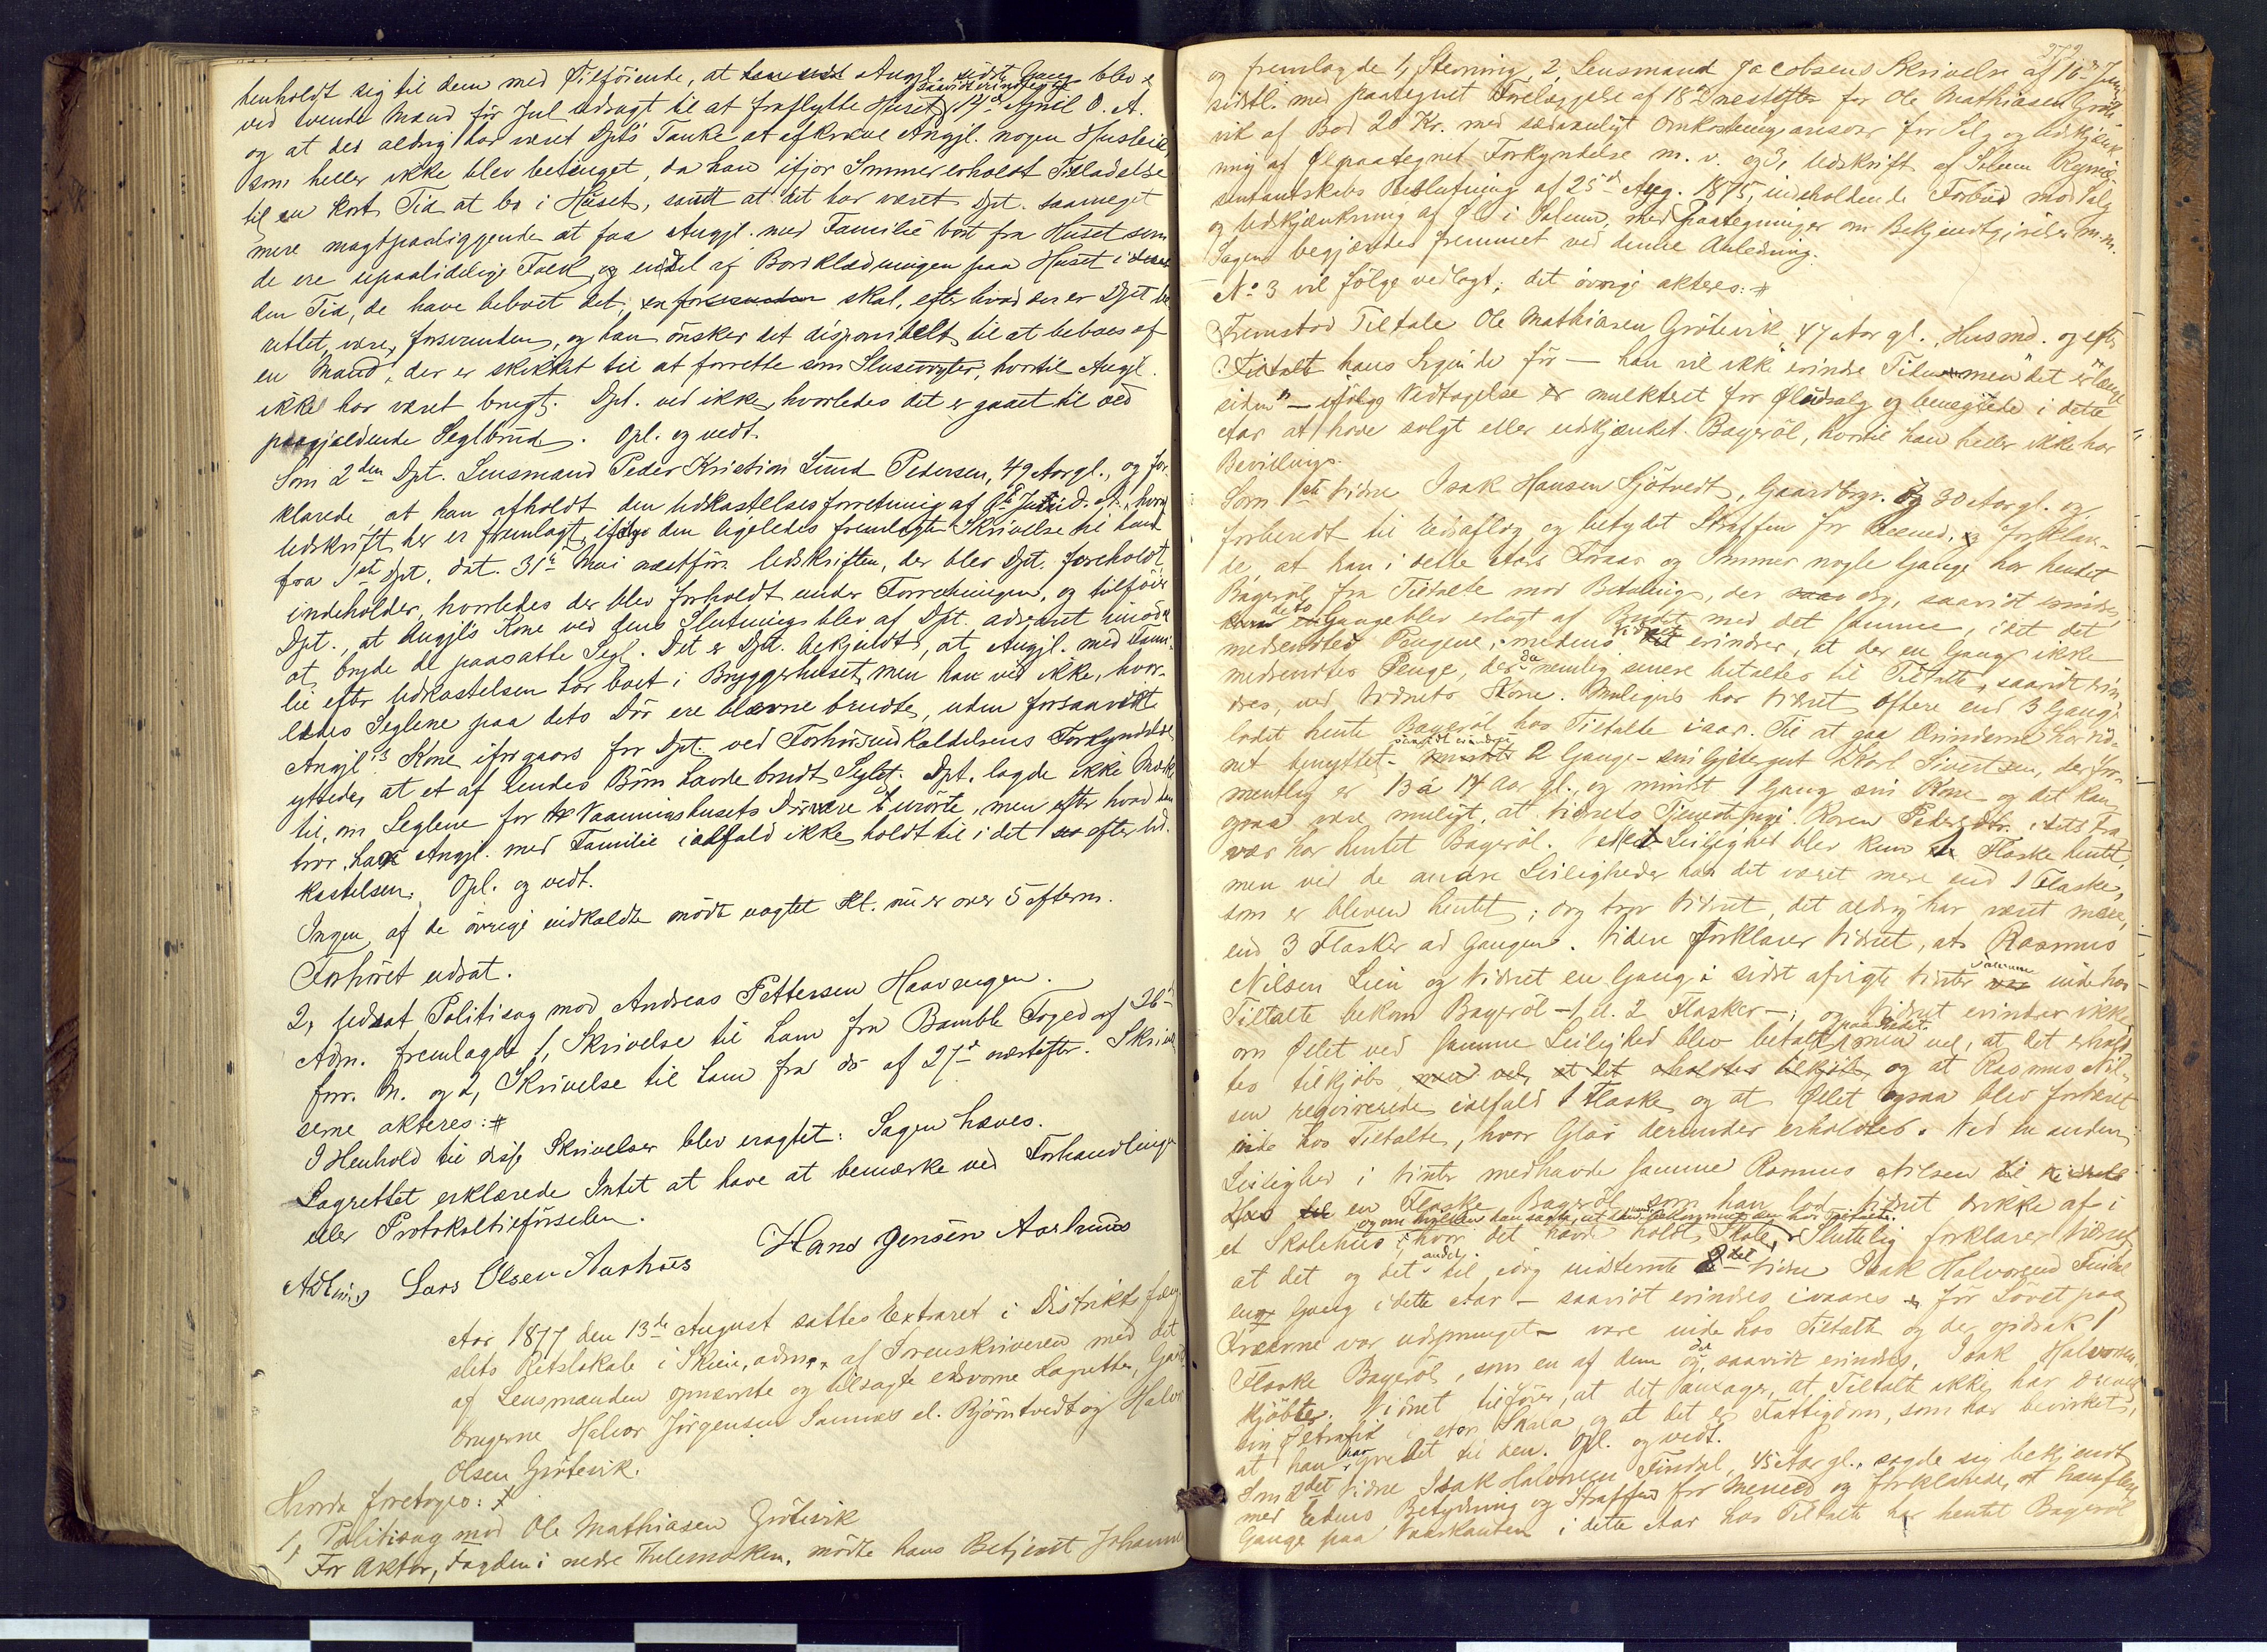 henholdt sig til dem med Tilføiende, at Angjl. sidste Gang blev
ved tvende Mænd för Jul udsagt til at fraflytte Huset 14de April D. A.
saavidt erindres
og at det aldrig har været Dpts Tanke at afkræve Angjl. nogen Husleie
som heller ikke blev betinget, da han ifjor Sommer erholdt Tilladelse
til en kort Tid at bo i Huset, samt at det har været Dpt. saameget
mere magtpaaliggende at faa Angjl. med Familie bort fra Huset som
de ere upaalidelige Folk og endel af Bordklædningen paa Huset i
den Tid, de have beboet det, skal, efter hvad der er Dpt be
rettet, være forsvunden, og han ønsker det disponibelt til at beboes af
en Mand, der er skikket til at forrette som Slusevogter, hvortil Angjl.
ikke har været brugt. Dpt. ved ikke, hvorledes det er gaaet til med
paagjældende Seglbrud. Opl. og vedt.
Som 2den Dpt. Lensmand Peder Kristian Lund Pedersen, 49 Aar gl., og for
klarede, at han afholdt den Udkastelsesforretning af D. A., hvoraf
Udskrift her er fremlagt, ifølge den ligeledes fremlagte Skrivelse til ham
fra 1ste Dpt. dat. 31te Mai næstför. Udskriften, der blev Dpt. foreholdt
indeholder, hvorledes der blev forholdt under Forretningen, og tilföier
Dpt., at Angjls Kone ved dens Slutning blev af Dpt. advaret imod
at bryde de paasatte Segl. Det er Dpt. bekjendt, at Angjl. med Fami
lie efter Udkastelsen har boet i Bryggerhuset, men han ved ikke, hvor-
ledes Seglene paa dets Dör ere blevne brudte, uden forsaavidt
Angjls Kone iforgaars for Dpt. ved Forhörsindkaldelsens Forkyndelse
yttrede, at et af hendes Börn havde brudt Seglet. Dpt. lagde ikke Mærke
til, om Seglene for Vaaningshusets Dör være urörte, men efter hvad han
tror, har Angjl. med Familie ialfald ikke holdt til i det efter Ud-
kastelsen. Opl. og vedt.
Ingen af de övrige indkaldte mödte uagtet Kl. nu er over 5 Efterm.
Forhöret udsat.
2, Udsat Politisag mod Andreas Pettersen Haavengen.
Adm. fremlagde 1, Skrivelse til ham fra Bamble Foged af 26
forr. M. og 2, Skrivelse til ham fra do af 27de næstefter. Skrivel
serne akteres: #
I Henhold til disse Skrivelser blev eragtet: Sagen hæves.
Lagrettet erklærede Intet at have at bemærke ved Forhandlingen
eller Protokoltilförselen.
Lars Olsen Aarhus Hans Jensen Aarhuus
Aar 1877 den 13de August sattes Extraret i Distriktsfæng
slets Retslokale i Skien, adm. af Sorenskriveren med det
af Lensmanden opnævnte og tilsagte edsvorne Lagrette, Gaard
brugerne Halvor Jörgensen Sannæs el. Björntvedt og Halvor
Olsen Grötsvik.
Hvorda foretoges: #
1, Politisag mod Ole Mathiasen Grötsvik
For Aktor, Fogden i nedre Thelemarken, mödte hans Betjent Johannes
og fremlagde 1, Stevning, 2, Lensmand Jacobsens Skrivelse af 16de Juni
sidstl. med paategnet Forelæggelse af 18de næstefter for Ole Mathiasen Gröts
vik af Bod 20 Kr. med sædvanligt Omkostningsansvar for Salg og Udskjænk
ning af Øl paategnet Forkyndelse m. v. og 3, Udskrift af Solum Repræ-
sentantskabs Beslutning af 25de Aug. 1875, indeholdende Forbud mod Salg
og Udskjænkning af Øl i Solum, med Paategninger om Bekjendtgjörelser m.m.
Sagen begjæredes fremmet ved denne Anledning.
No 3 vil fölge vedlagt; det övrige akteres: #
Fremstod Tiltalte Ole Mathiasen Grötsvik, 47 Aar gl., Husmd. og efter
Tiltalte hans Sigende för — han vil ikke erindre Tiden men det er længe
siden" — ifölge Vedtagelse er mulkteret for Øludsalg og benægtede i dette
Aar at have solgt eller udskjænket Bayeröl, hvortil han heller ikke har
Bevilling.
Som 1ste Vidne Isak Hansen Sjötvedt, Gaardbrgr. 30 Aar gl. og
forberedt til Edsaflæg og betydet Straffen for Mened, forklare-
de, at han i dette Aars Foraar og Sommer nogle Gange har hentet
Bayeröl fra Tiltalte mod Betaling, der dog, saavidt erindres,
Gange blev erlagt af Budet med det Samme, idet det
medsendtes Pengene, medens Vidnet erindrer, at der en Gang ikke
medsendtes Penge, der da nemlig senere betaltes til Tiltalte, saavidt erin
dres, ved Vidnets Kone. Muligens har Vidnet oftere end 3 Gange
ladet hente Bayeröl hos Tiltalte iaar. Til at gaa Ærinderne har Vid-
net benyttet — saavidt erindres 2 Gange — sin Gjetergut Karl Sivertsen, der for-
mentlig er 13 à 14 Aar gl., og mindst 1 Gang sin Kone og det kan
ogsaa være muligt, at Vidnets Tjenestepige Karen Pedersdtr. i dets Fra
vær har hentet Bayeröl. Ved 1 Leilighed blev kun 1 Flaske hentet,
men ved de andre Leiligheder har det været mere end 1 Flaske,
som er bleven hentet; dog tror Vidnet, det aldrig har været mere,
end 3 Flasker ad Gangen. Videre forklarer Vidnet, at Rasmus
Nilsen Lien og Vidnet en Gang i sidst afvigte Vinter sammen inde hos
Tiltalte bekom Bayeröl — 1 el. 2 Flasker —; og Vidnet erindrer ikke
om Øllet ved samme Leilighed blev betalt paa Stedet, men vel, at det erhold
tes tilkjöbs, men vel, at det erholdtes tilkjöbs, og at Rasmus Nil-
sen reqvirerede ialfald 1 Flaske, og at Øllet ogsaa blev fortæret
inde hos Tiltalte, hvor Glas derunder erholdtes. Ved en anden
Leilighed i Vinter medhavde samme Rasmus Nilsen
en Flaske Bayeröl, som han lod Vidnet drikke af i
og om hvilken han sagde, at
et Skolehus, hvor det havde holdt Skole. Sluttelig forklarer Vidnet
at det og det andet til idag indstevnte Vidne Isak Halvorsen Findal
engang i dette Aar — saavidt erindres ivaares för Lövet paa
Trærne var udsprunget — vare inde hos Tiltalte og der opdrak 1
Flaske Bayeröl, som en af dem og da, saavidt erindres, Isak Halvorsen
kjöbte. Vidnet tilföier, at det antager, at Tiltalte ikke har drevet
sin Øltrafik i stor Skala, og at det er Fattigdom, som har bevirket,
at han har grebet til den. Opl. og vedt.
Som 2det Vidne Isak Halvorsen Findal, 45 Aar gl., sagde sig bekjendt
med Edens Betydning og Straffen for Mened og forklarede, at han flere
Gange paa Vaarkanten i dette Aar hos Tiltalte har hentet Bayeröl